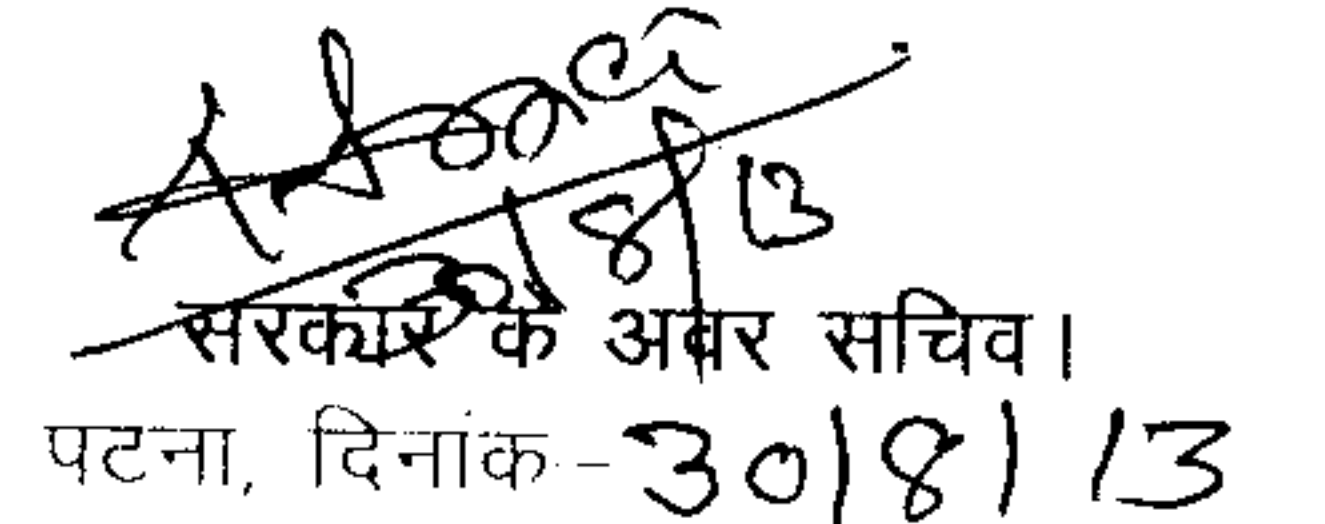 30/8/13
सरकार के अवर सचिव।
पटना, दिनांक - 30/8/13